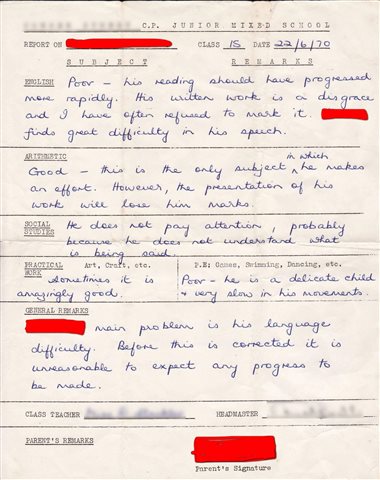 C.P. JUNIOR MIXED SCHOOL
REPORT ON CLASS 1S DATE 22/6/70
SUBJECT REMARKS
ENGLISH Poor – his reading should have progressed
more rapidly. His written work is a disgrace
and I have often refused to mark it.
finds great difficulty in his speech.
ARITHMETIC
Good – this is the only subject in which he makes
an effort. However, the presentation of his
work will lose him marks.
SOCIAL STUDIES He does not pay attention, probably
because he does not understand what
is being said.
PRACTICAL WORK Art, Craft, etc.
Sometimes it is
amazingly good.
P.E: Games, Swimming, Dancing, etc.
Poor – he is a delicate child
+ very slow in his movements.
GENERAL REMARKS
main problem is his language
difficulty. Before this is corrected it is
unreasonable to expect any progress to
be made.
CLASS TEACHER HEADMASTER
PARENT'S REMARKS
Parent's Signature